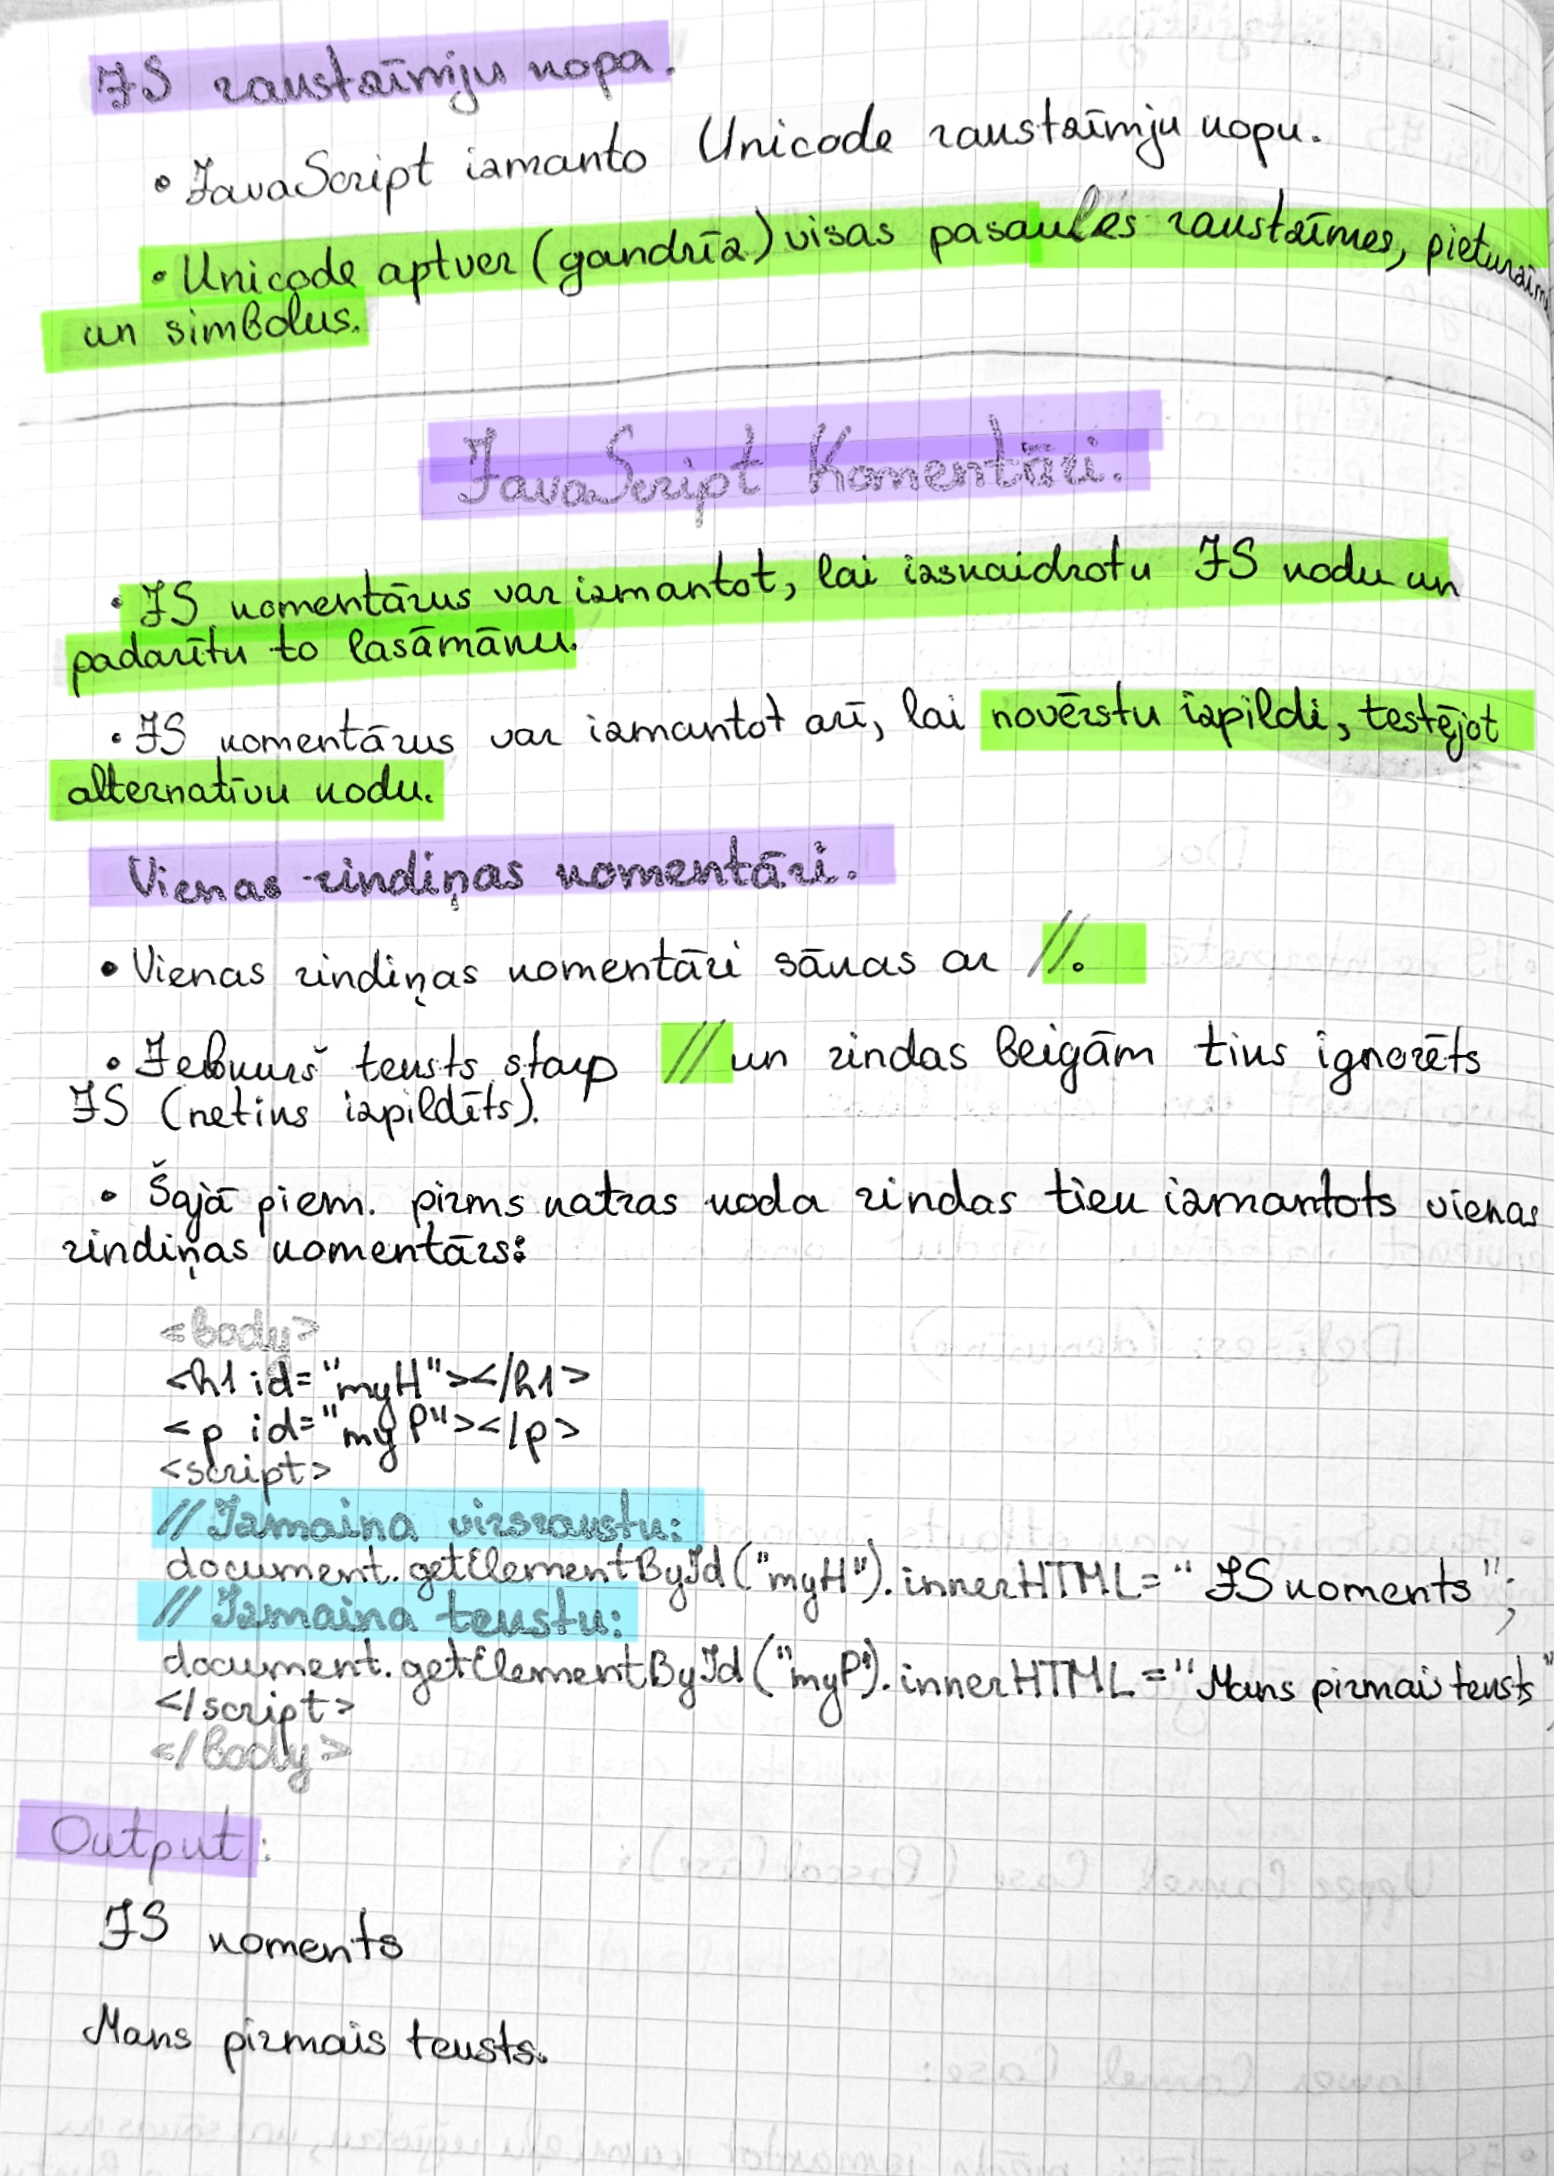 JS rakstzīmju kopa.
• JavaScript izmanto Unicode rakstzīmju kopu.
• Unicode aptver (gandrīz) visas pasaules rakstzīmes, pieturzīm
un simbolus.
JavaScript Komentāri.
• JS komentārus var izmantot, lai izskaidrotu JS kodu un
padarītu to lasāmāku.
• JS komentārus var izmantot arī, lai novērstu izpildi, testējot
alternatīvu kodu.
Vienas rindiņas komentāri.
• Vienas rindiņas komentāri sākas ar //.
• Jebkurš teksts starp // un rindas beigām tiks ignorēts
JS (netiks izpildīts).
• Šajā piem. pirms katras koda rindas tiek izmantots vienas
rindiņas komentārs:
<body>
<h1 id="myH"></h1>
<p id="myP"></p>
<script>
// Izmaina virsrakstu:
document.getElementById("myH").innerHTML = "JS koments";
// Izmaina tekstu:
document.getElementById("myP").innerHTML = "Mans pirmais teksts"
</script>
</body>
Output:
JS koments
Mans pirmais teksts.